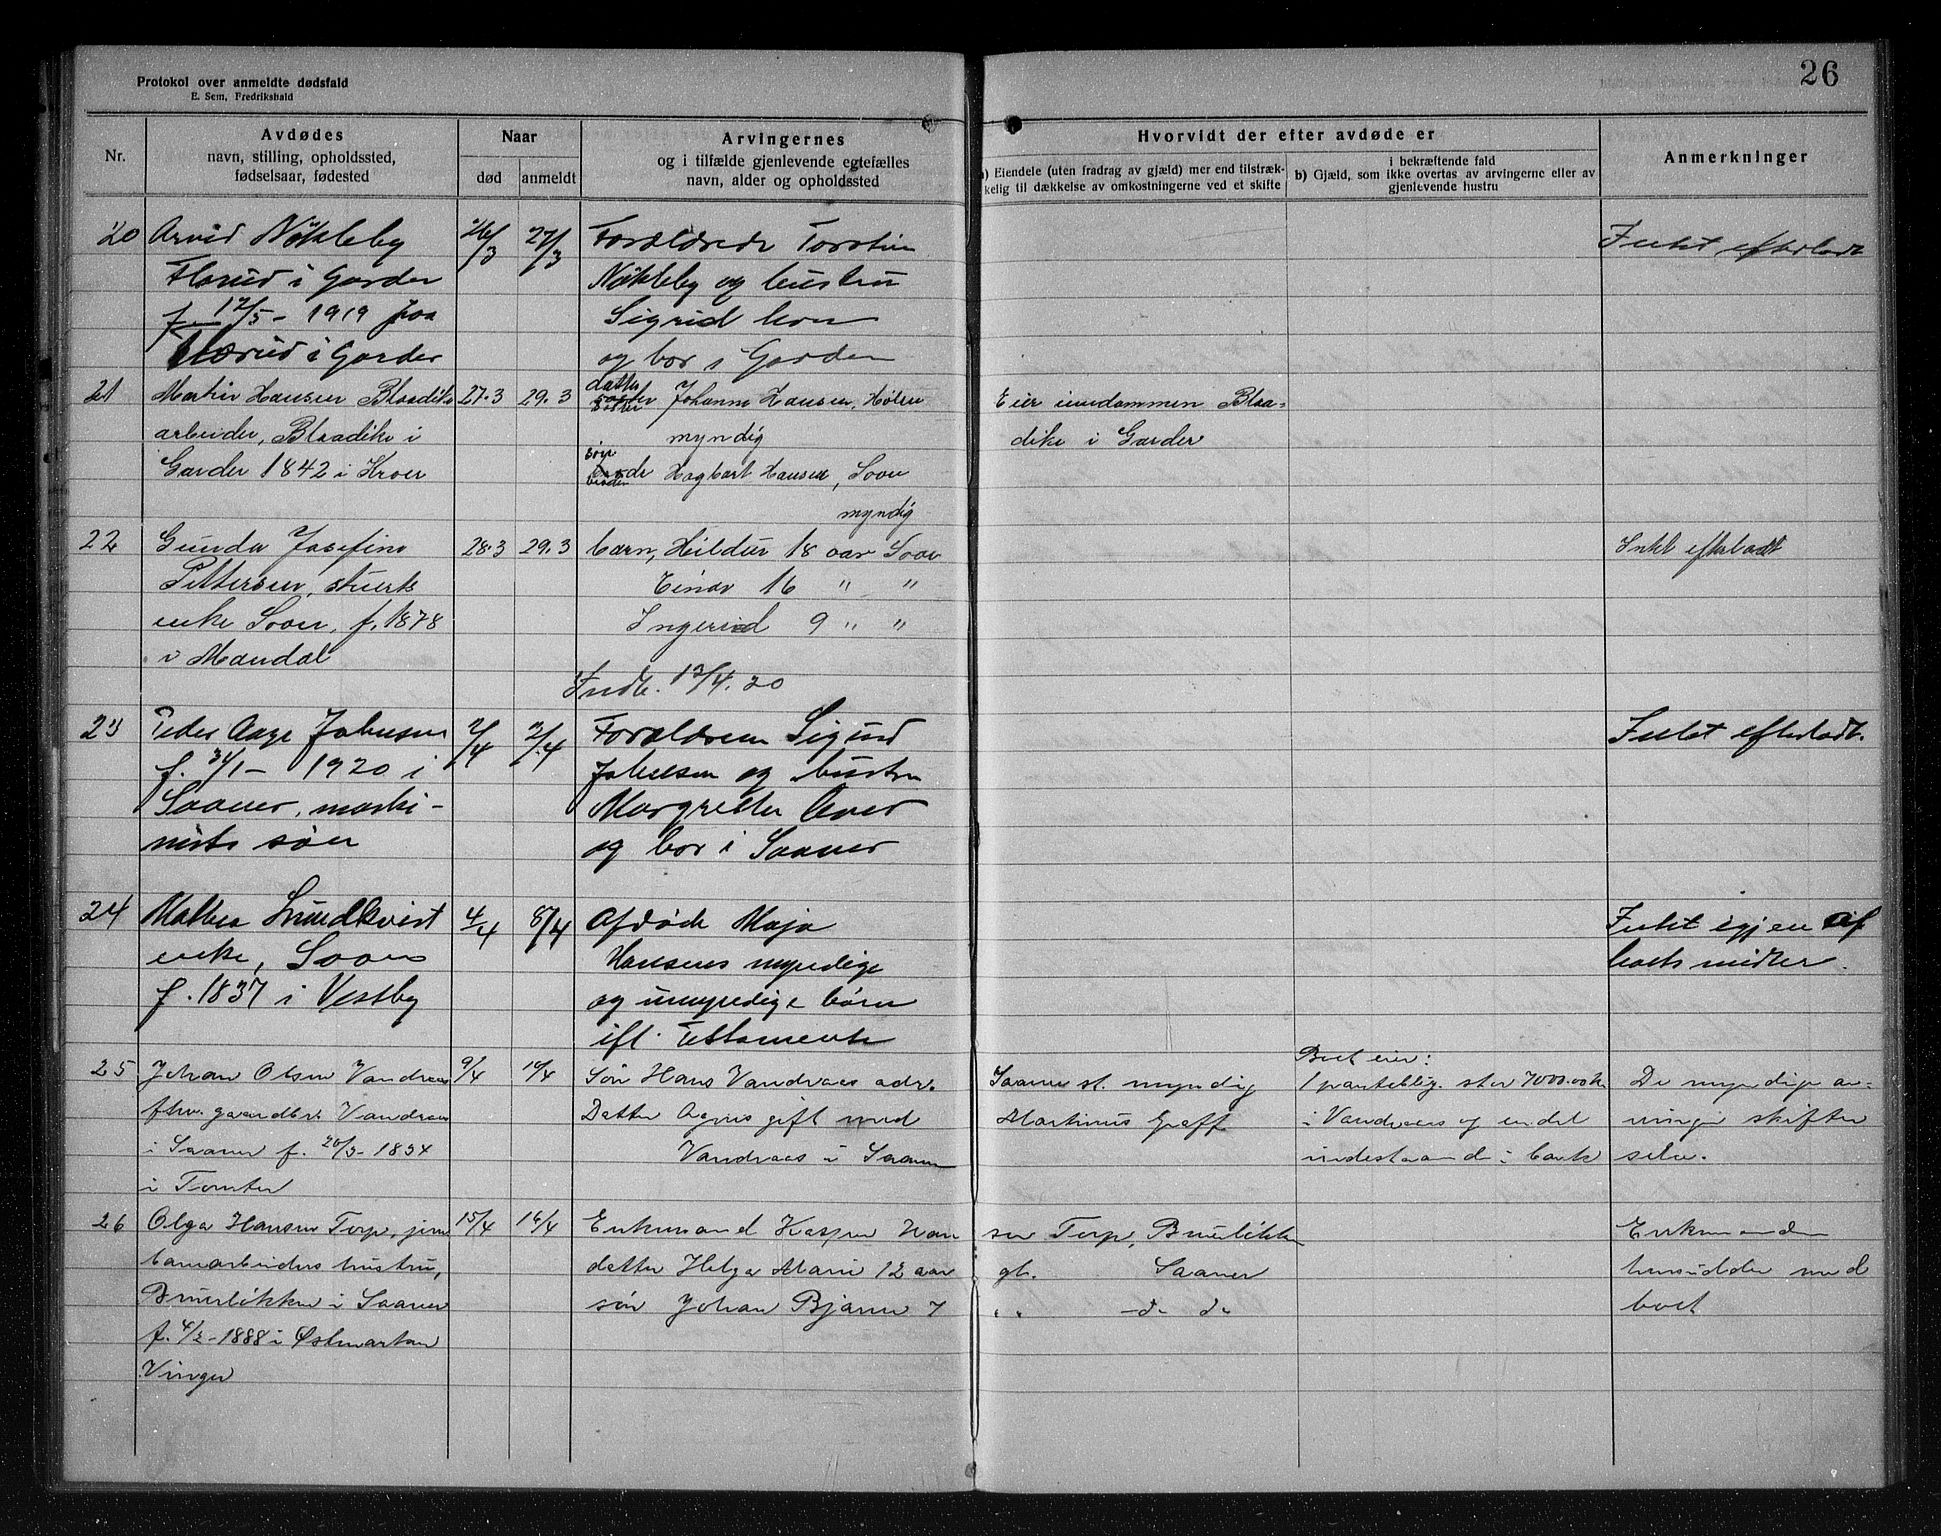 26
Protokol over anmeldte dødsfald
E. Sem, Fredrikshald
Nr.
Avdødes
navn, stilling, opholdssted,
fødselsaar, fødested
Naar
død
anmeldt
Arvingernes
og i tilfælde gjenlevende egtefælles
navn, alder og opholdssted
Hvorvidt der efter avdøde er
a) Eiendele (uten fradrag av gjæld) mer end tilstræk-
kelig til dækkelse av omkostningerne ved et skifte
i bekræftende fald
b) Gjæld, som ikke overtas av arvingerne eller av
gjenlevende hustru
Anmerkninger
20 Arvid Nökleby 26/3 27/3 Forældrede Torstin Intet efterladt
i Garder Nökleby og hustru
f. 12/5 - 1919 paa Sigrid
i Garder og bor i Garder
21 Martin Hansen Blaadike 27.3 29.3 datter Johanne Hansen, Hölen Eier eiendommen Blaa-
arbeider, Blaadike i myndig dike i Garder
Garder 1842 i Kroer søn Hagbart Hansen, Soon
myndig
22 Gunda Josefine 28.3 29.3 barn, Hildur 18 aar Soon Intet efterladt
Pettersen, stuerts Einar 16 " "
enke Soon, f. 1878 Ingerid 9 " "
i Mandal
Indb. 12/4.20
23 Peder Aage Johnsen 2/4 2/4 Forældrene Sigurd Intet efterladt.
f. 31/1 - 1920 i Johnsen og hustru
Saaner, maski- Margrethe
nists søn og bor i Saaner
24 Mathea Lundkvist 4/4 8/4 Afdöde Maja Intet igjen af
enke, Soon Hansens myndige boets midler.
f. 1837 i Vestby og umyndige börn
ifl. Testamente
25 Johan Olsen Vandraas 9/4 10/4 Søn Hans Vandraas adr. Saaner st. myndig Boet eier:
1 panteoblig. stor 7000.00 kr De myndige ar-
fhv. gaardbr. Vandraas Datter Agnes gift med Martinus Graff i Vandraas og endel vinger skifter
i Saaner f. 20/3 - 1834 Vandraas i Saaner indestaaende i bank selv.
i Tomter
26 Olga Hansen Torp, jern 15/4 16/4 Enkemand Kasper Han sen Torp, Bruerløkken Enkemanden
banearbeiders hustru, datter Helga Marie 12 aar gl. Saaner hensidder med
Bruerløkken i Saaner søn Johan Bjarne 7 " " -d- d- boet
f. 4/2 - 1888 i Østmarken
Vinger